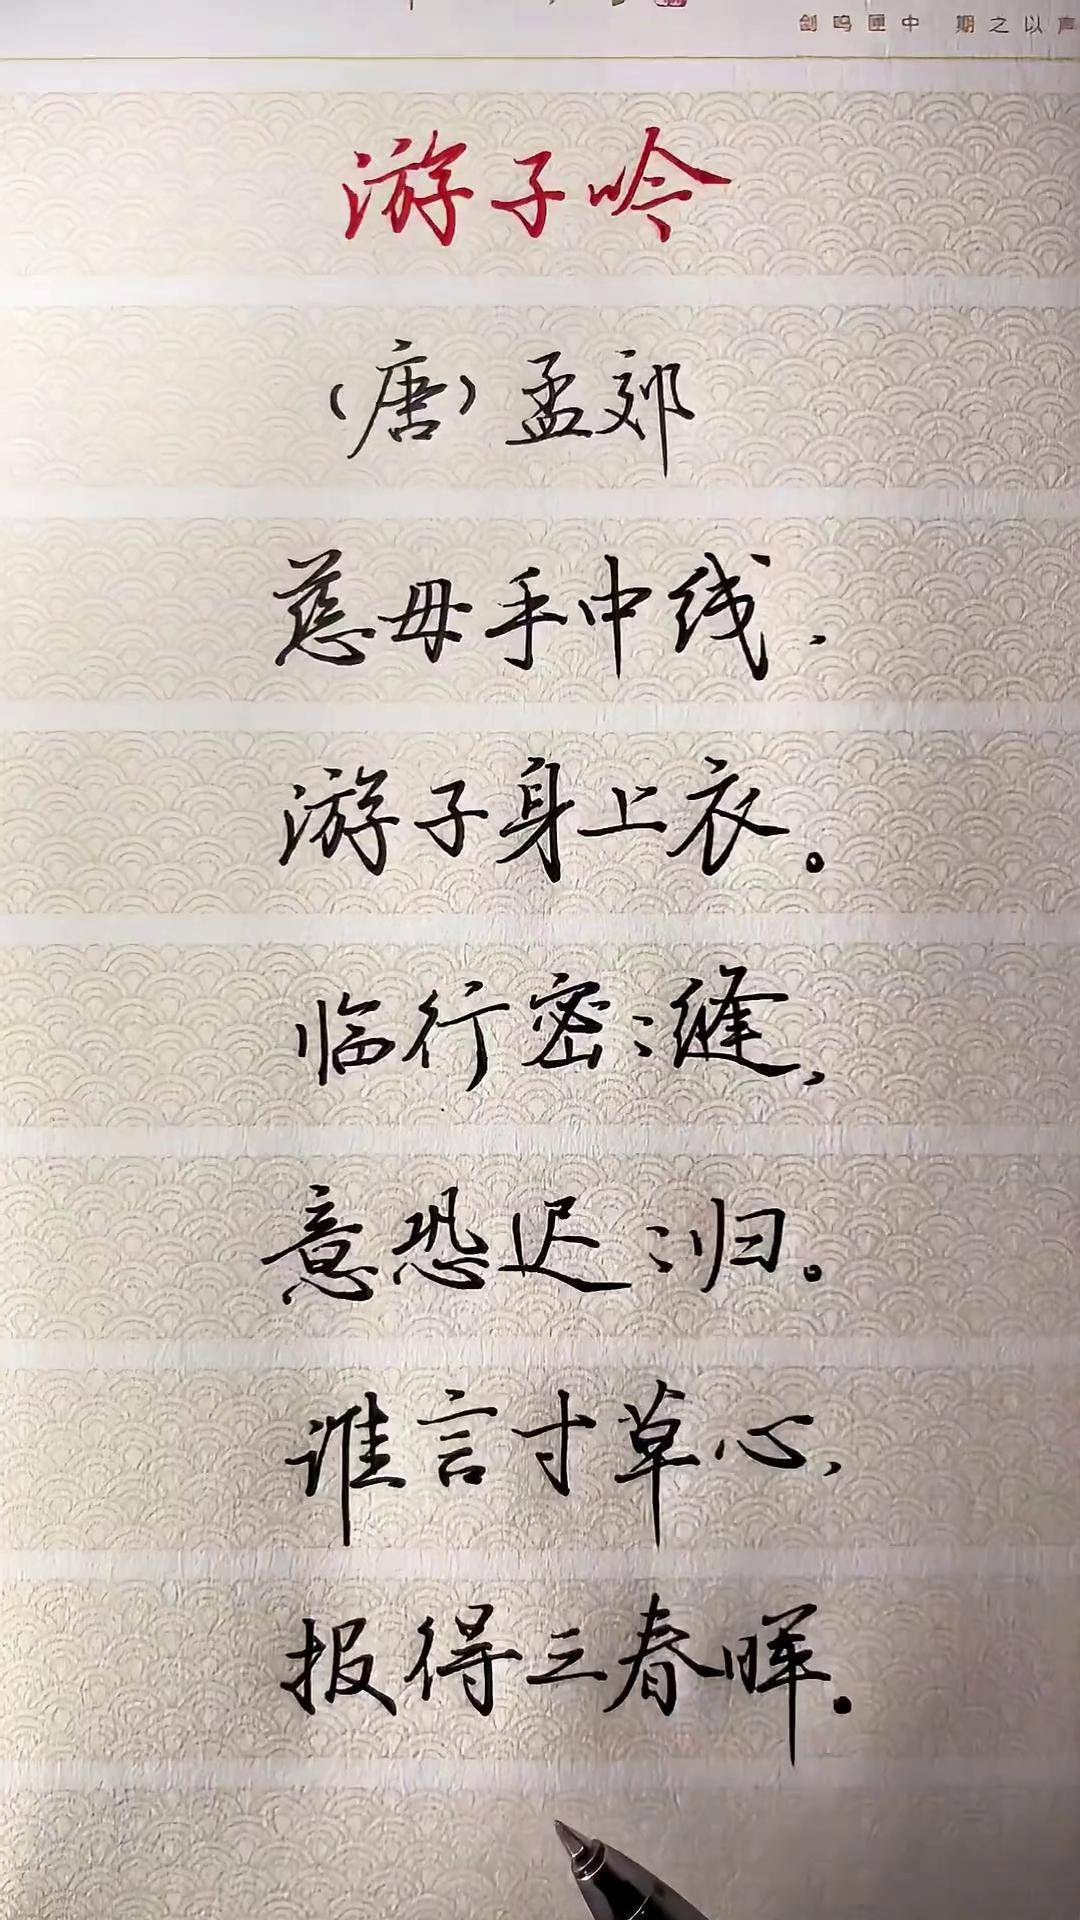 剑鸣匣中 期之以声
游子吟
（唐）孟郊
慈母手中线，
游子身上衣。
临行密：缝，
意恐迟：归。
谁言寸草心，
报得三春晖。